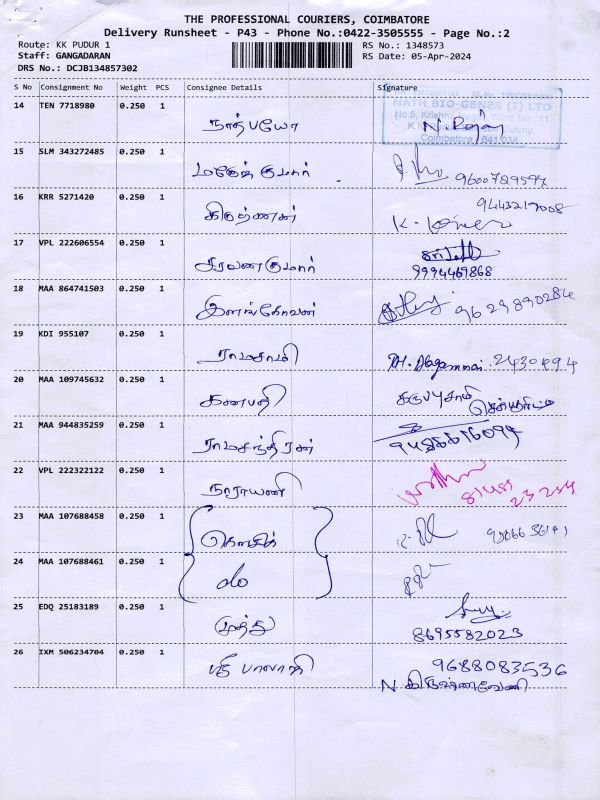 THE PROFESSIONAL COURIERS, COIMBATORE
Delivery Runsheet - P43 - Phone No.:0422-3505555 - Page No.:2
Route: KK PUDUR 1
RS No.: 1348573
Staff: GANGADARAN
RS Date: 05-Apr-2024
DRS No.: DCJB134857302
S No Consignment No Weight PCS Consignee Details Signature
NATH BIO-GENES (I) LTD
14 TEN 7718980 0.250 1
நாத்பயோ N. Rajan
15 SLM 343272485 0.250 1
மகேஷ்குமார் 9600789597
16 KRR 5271420 0.250 1
கிருஷ்ணன் 9443217008
17 VPL 222606554 0.250 1
சரவணகுமார்
9994469868
18 MAA 864741503 0.250 1
இளங்கோவன் 9629890284
19 KDI 955107 0.250 1
ராமசாமி 2430494
20 MAA 109745632 0.250 1
கணபதி கருப்புசாமி
21 MAA 944835259 0.250 1
ராமசந்திரன்
22 VPL 222322122 0.250 1
நாராயணி
23 MAA 107688458 0.250 1
கௌசிக்
24 MAA 107688461 0.250 1
do
25 EDQ 25183189 0.250 1
முத்து
8695582023
26 IXM 506234704 0.250 1
ஸ்ரீ பாலாஜி 9688083536
N கிருஷ்ணவேணி